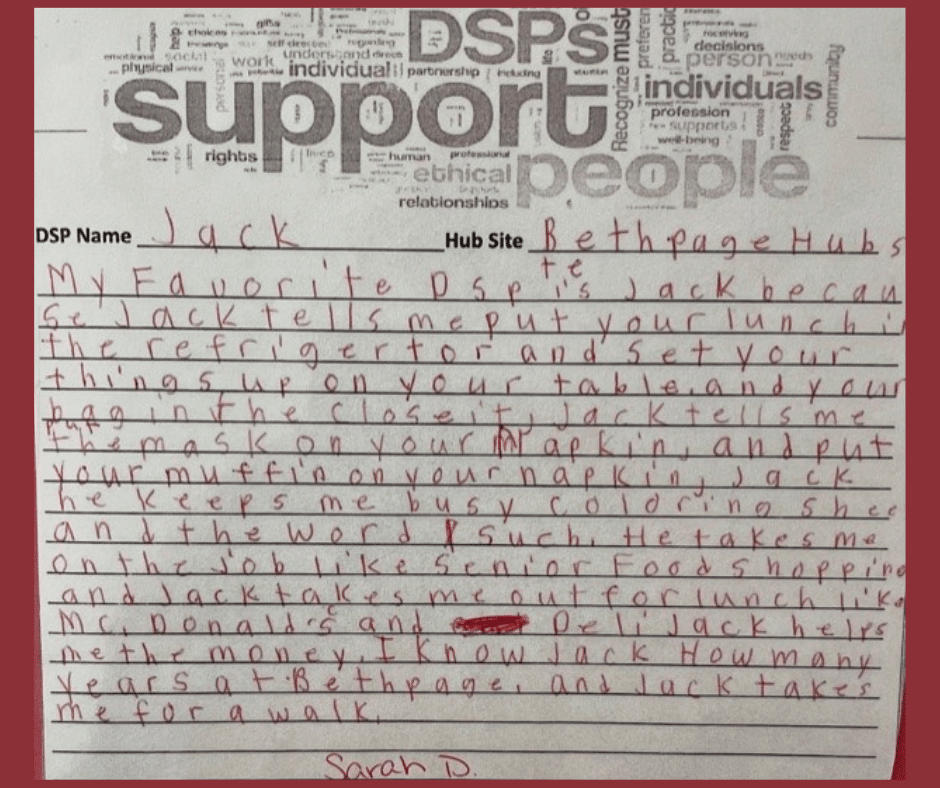 gifts
help choices
DSPs
must
receiving
decisions
self directed regarding
emotional social
work understand
person needs
physical
individual partnership including
Recognize
individuals
community
support
profession
supports
respect
well-being
rights
human professional
ethical
people
relationships
DSP Name Jack Hub Site Bethpage Hubs
te
My Favorite Dsp is Jack becau
se Jack tells me put your lunch i
the refrigertor and set your
things up on your table. and your
bag in the closeit, Jack tells me
put
the mask on your Napkin, and put
your muffin on your napkin, Jack
he keeps me busy coloring shee
and the word Such. He takes me
on the job like Senior Food shopping
and Jack takes me out for lunch like
Mc. Donald's and Deli Jack helps
me the money. I know Jack How many
years at Bethpage. and Jack takes
me for a walk.
Sarah D.